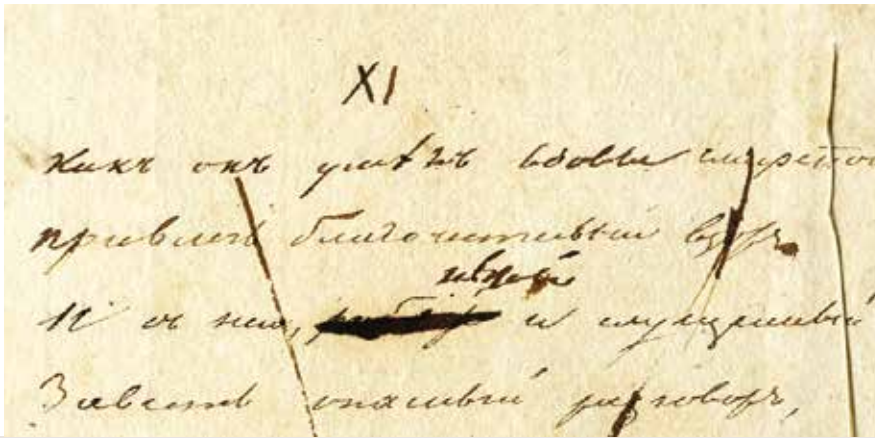 XI
Какъ онъ умѣлъ вдовы смирено
привлечь благочестивый взоръ
И съ нею, и смущенный
Завесть опасный разговоръ,